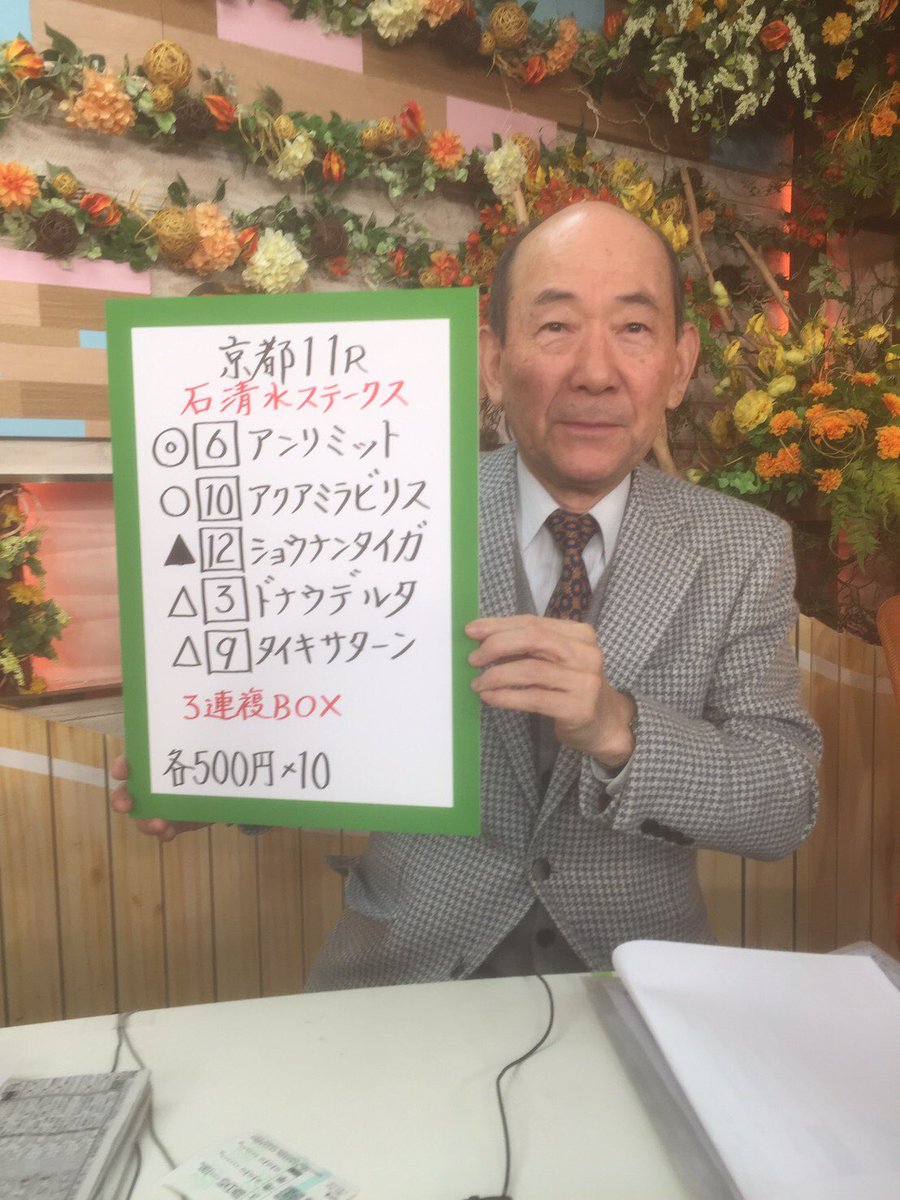 京都11R
石清水ステークス
◎6アンリミット
○10アクアミラビリス
▲12ショウナンタイガ
△3ドナウデルタ
△9タイキサターン
3連複BOX
各500円×10